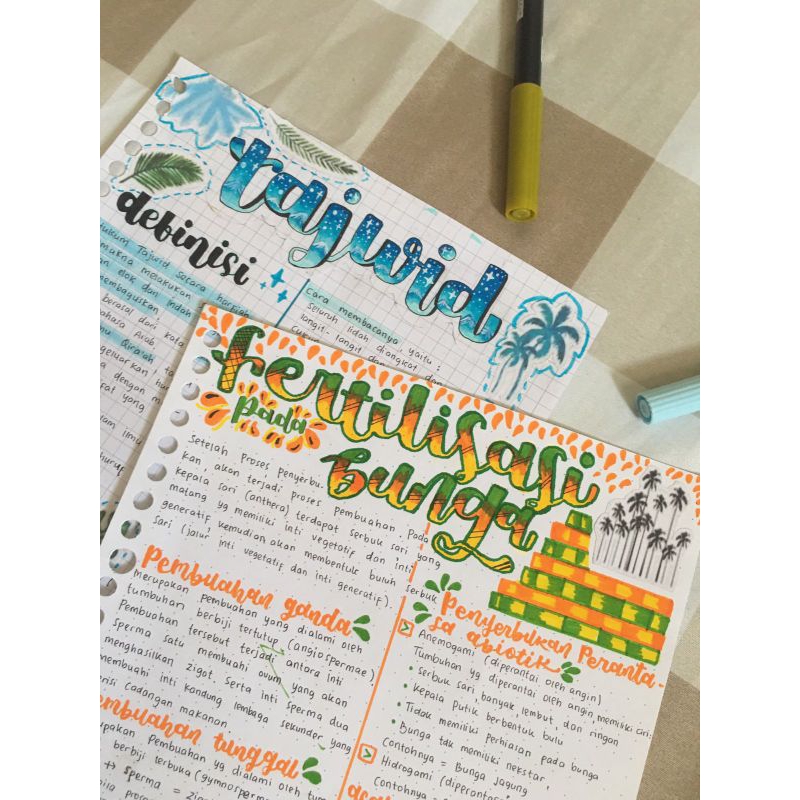 tajwid
definisi
Hukum Tajwid secara harfiah
melakukan
elok dan indah
membaguskan
berasal dari kata
bahasa Arab
Qira'ah
mengeluarkan
dengan
yang
ilmu
huruf
Cara membacanya, yaitu :
Seluruh lidah diangkat
langit-langit dan
fertilisasi
pada
bunga
Setelah Proses Penyerbu-
kan, akan terjadi proses pembuahan. Pada
kepala sari (anthera) terdapat serbuk sari yang
matang yg memiliki inti vegetatif dan inti
generatif kemudian akan membentuk buluh serbuk
sari (jalur inti vegetatif dan inti generatif).
Pembuahan ganda
merupakan pembuahan yang dialami oleh
tumbuhan berbiji tertutup (angiospermae)
Pembuahan tersebut terjadi antara inti
sperma satu membuahi ovum yang akan
menghasilkan zigot serta inti sperma dua
membuahi inti kandung lembaga sekunder yang
berisi cadangan makanan
Pembuahan tunggal
merupakan Pembuahan yg dialami oleh
berbiji terbuka
sperma =
Penyerbukan Peranta-
ra abiotik
Anemogami (diperantai oleh angin)
Tumbuhan yg diperantai oleh angin memiliki ciri:
• serbuk sari, banyak, lembut, dan ringan
• kepala Putik berbentuk bulu
• Tidak memiliki Perhiasan pada bunga
• Bunga tdk memiliki nekstar,
Contohnya = Bunga jagung
Hidrogami (diperantai
Contohnya =